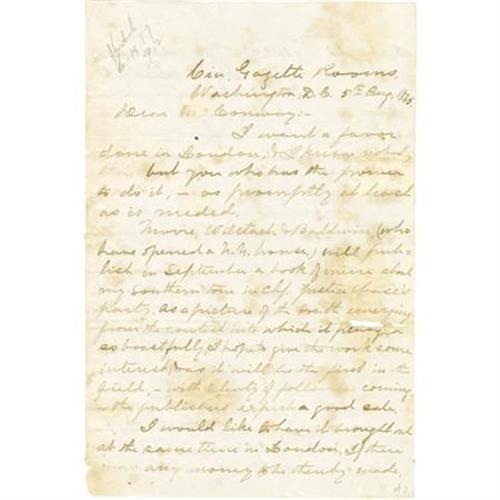 Cin. Gazette Rooms,
Washington, D.C. 5th Aug. 1865
Dear Mr Conway:-
I want a favor
done in London, & I know nobody
but you who has the power
to do it, - as promptly at least
as is needed.
Moore, Wilstach & Baldwin (who
have opened a N.Y. house) will pub-
lish in September a book of mine about
my southern tour in Chf. Justice Chase's
party. As a picture of the south emerging
from the contest into which it
so boastfully, I hope to give the work some
interest, as it will be the first in the
field, - with plenty of followers coming
- the publishers expect a good sale.
I would like to have it brought out
at the same time in London. If there
was any money to be thereby made,